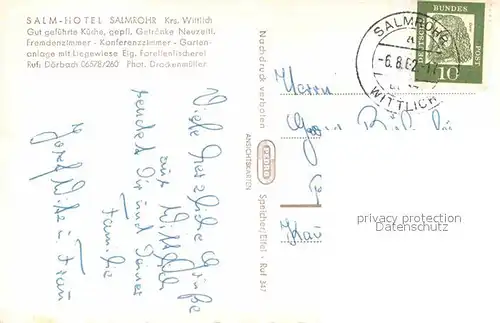 SALM-HOTEL SALMROHR Krs. Wittlich
Gut geführte Küche, gepfl. Getränke Neuzeitl.
Fremdenzimmer - Konferenzzimmer - Garten-
anlage mit Liegewiese Eig. Forellenfischerei
Ruf: Dörbach 06578/260 Phot. Drockenmüller
Viele herzliche Grüße
aus Wittlich
sendet Dir und Deiner
Familie
Josef Witz u. Frau
Nachdruck verboten
ANSICHTSKARTEN
Speicher/Eifel - Ruf 347
SALMROHR
a
-6.8.62-
WITTLICH
DEUTSCHE
BUNDES
POST
10
Herrn
privacy protection
Datenschutz